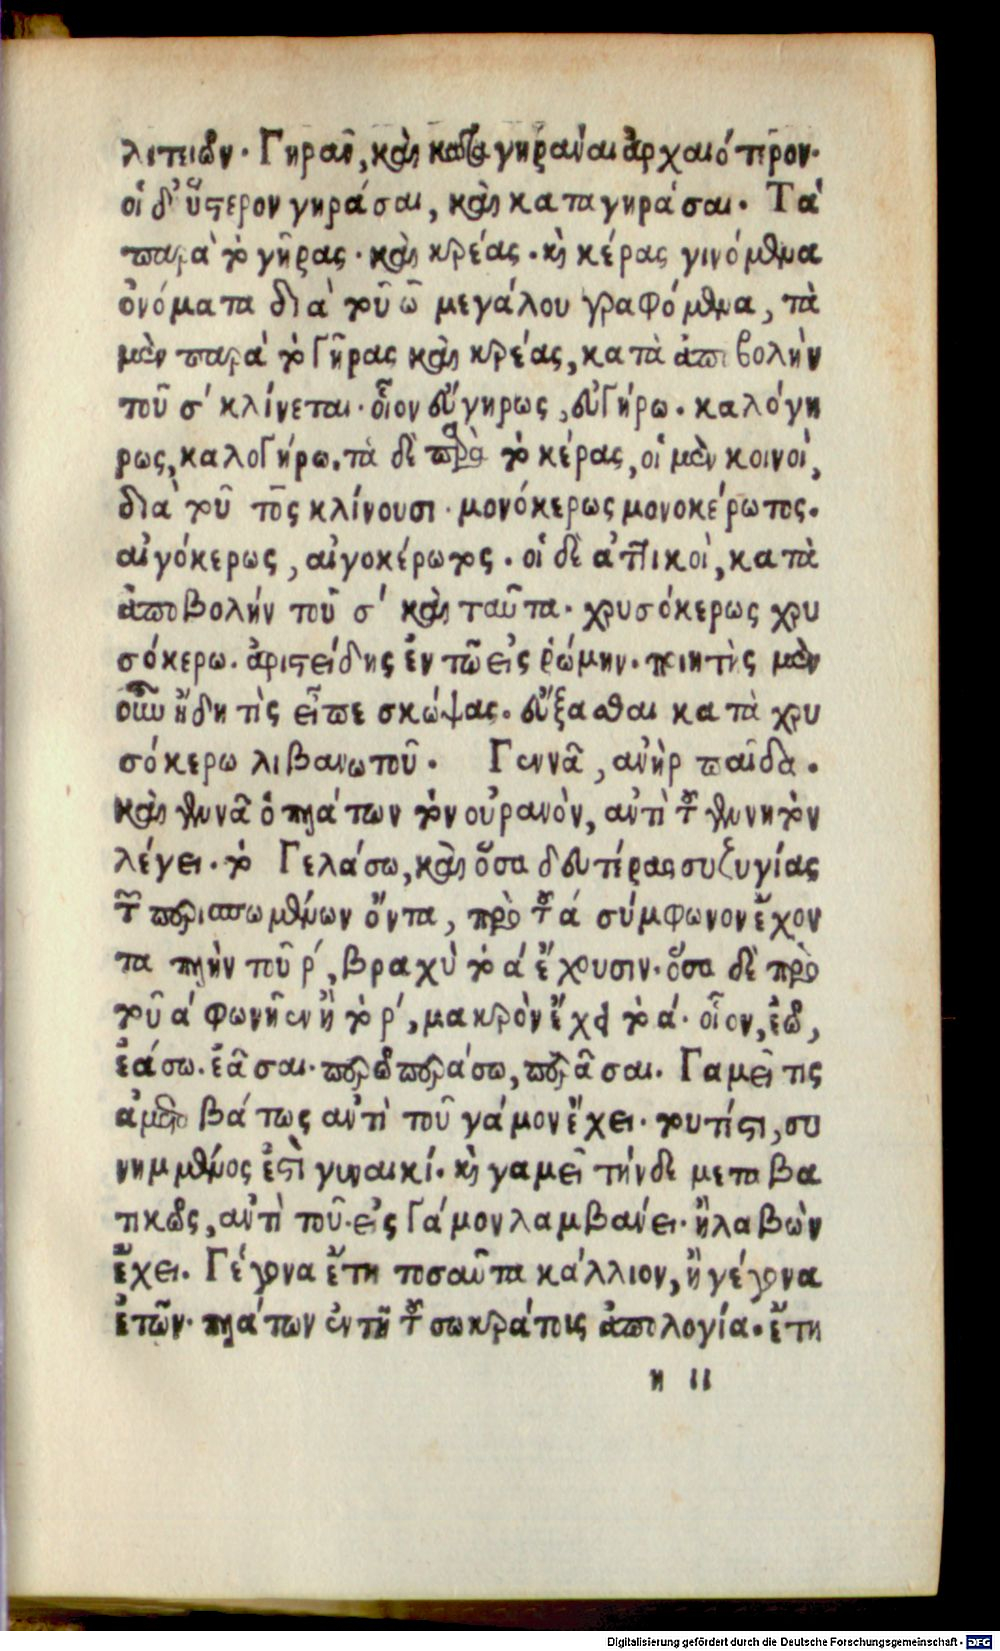 λιπιών. Γηρᾶν, καὶ καταγηράναι ἀρχαιότερον.
οἱ δ' ὕστερον γηράσαι, καὶ καταγηράσαι. Τὰ
παρὰ τὸ γῆρας. καὶ κρέας. καὶ κέρας γινόμενα
ὀνόματα διὰ τοῦ ω μεγάλου γραφόμενα, τὰ
μὲν παρὰ τὸ γῆρας καὶ κρέας, κατὰ ἀποβολὴν
τοῦ σ' κλίνεται. οἷον εὔγηρως, εὐγήρω. καλόγη
ρως, καλογήρω. τὰ δὲ παρὰ τὸ κέρας, οἱ μὲν κοινοὶ,
διὰ τοῦ τος κλίνουσι. μονόκερως μονοκέρωτος.
αἰγόκερως, αἰγοκέρωτος. οἱ δὲ ἀττικοὶ, κατὰ
ἀποβολὴν τοῦ σ' καὶ ταῦτα. χρυσόκερως χρυ
σόκερω. ἀριστείδης ἐν τῶ εἰς ῥώμην. ποιητὴς μὲν
οὖν ἤδη τὶς εἶπε σκώψας. εὔξασθαι κατὰ χρυ
σόκερω λιβανωτοῦ. Γεννᾶ, ἀνὴρ παῖδα.
καὶ γεννᾶ ὁ πλάτων τὸν οὐρανὸν, ἀντὶ τοῦ γεννητὸν
λέγει. τὸ Γελάσω, καὶ ὅσα δευτέρας συζυγίας
τῶν περισπωμένων ὄντα, πρὸ τοῦ ά σύμφωνον ἔχον
τα πλὴν τοῦ ρ', βραχὺ τὸ ά ἔχουσιν. ὅσα δὲ πρὸ
τοῦ ά φωνῆεν ἢ τὸ ρ', μακρὸν ἔχει τὸ ά. οἷον, ἐῶ,
ἐάσω. ἐᾶσαι. περῶ περάσω, περᾶσαι. Γαμεῖ τις
ἀμεταβάτως ἀντὶ τοῦ γάμον ἔχει. τουτέστι, συ
νημμένος ἐστὶ γυναικί. καὶ γαμεῖ τήνδε μεταβα
τικῶς, ἀντὶ τοῦ. εἰς γάμον λαμβάνει. ἢ λαβὼν
ἔχει. Γέγονα ἔτη τοσαῦτα κάλλιον, ἢ γέγονα
ἐτῶν. πλάτων ἐν τῆ τοῦ σωκράτους ἀπολογία. ἔτη
η ιι
Digitalisierung gefördert durch die Deutsche Forschungsgemeinschaft - DFG